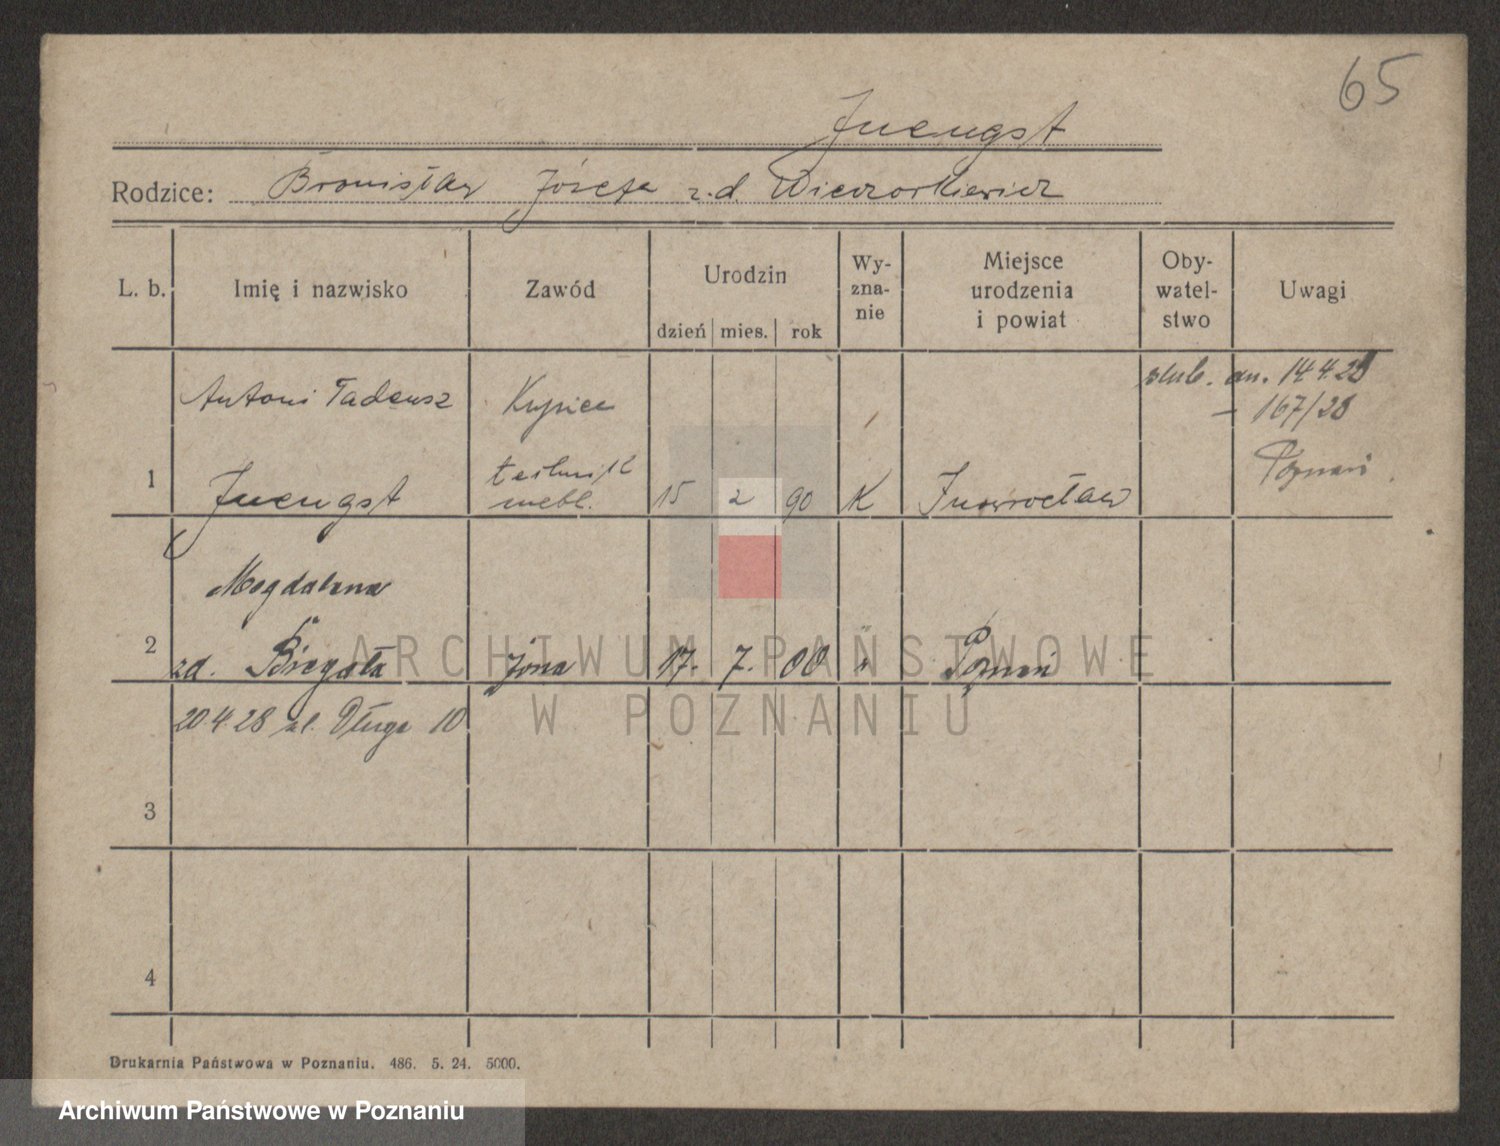 65
Juengst
Rodzice: Bronisław Józefa z.d. Wieczorkiewicz
L. b. Imię i nazwisko Zawód Urodzin dzień mies. rok Wy-zna-nie Miejsce urodzenia i powiat Oby-watel-stwo Uwagi
ślub. dn. 14.4.28
Antoni Tadeusz Kupiec
167/28
Poznań
1 Juengst mebl. 15 2 90 K Inowrocław
Magdalena
2 zd. Biegała żona 17. 7. 00 " Poznań
20.4.28 ul. Długa 10
3
4
Drukarnia Państwowa w Poznaniu. 486. 5. 24. 5000.
ARCHIWUM PAŃSTWOWE
W POZNANIU
Archiwum Państwowe w Poznaniu